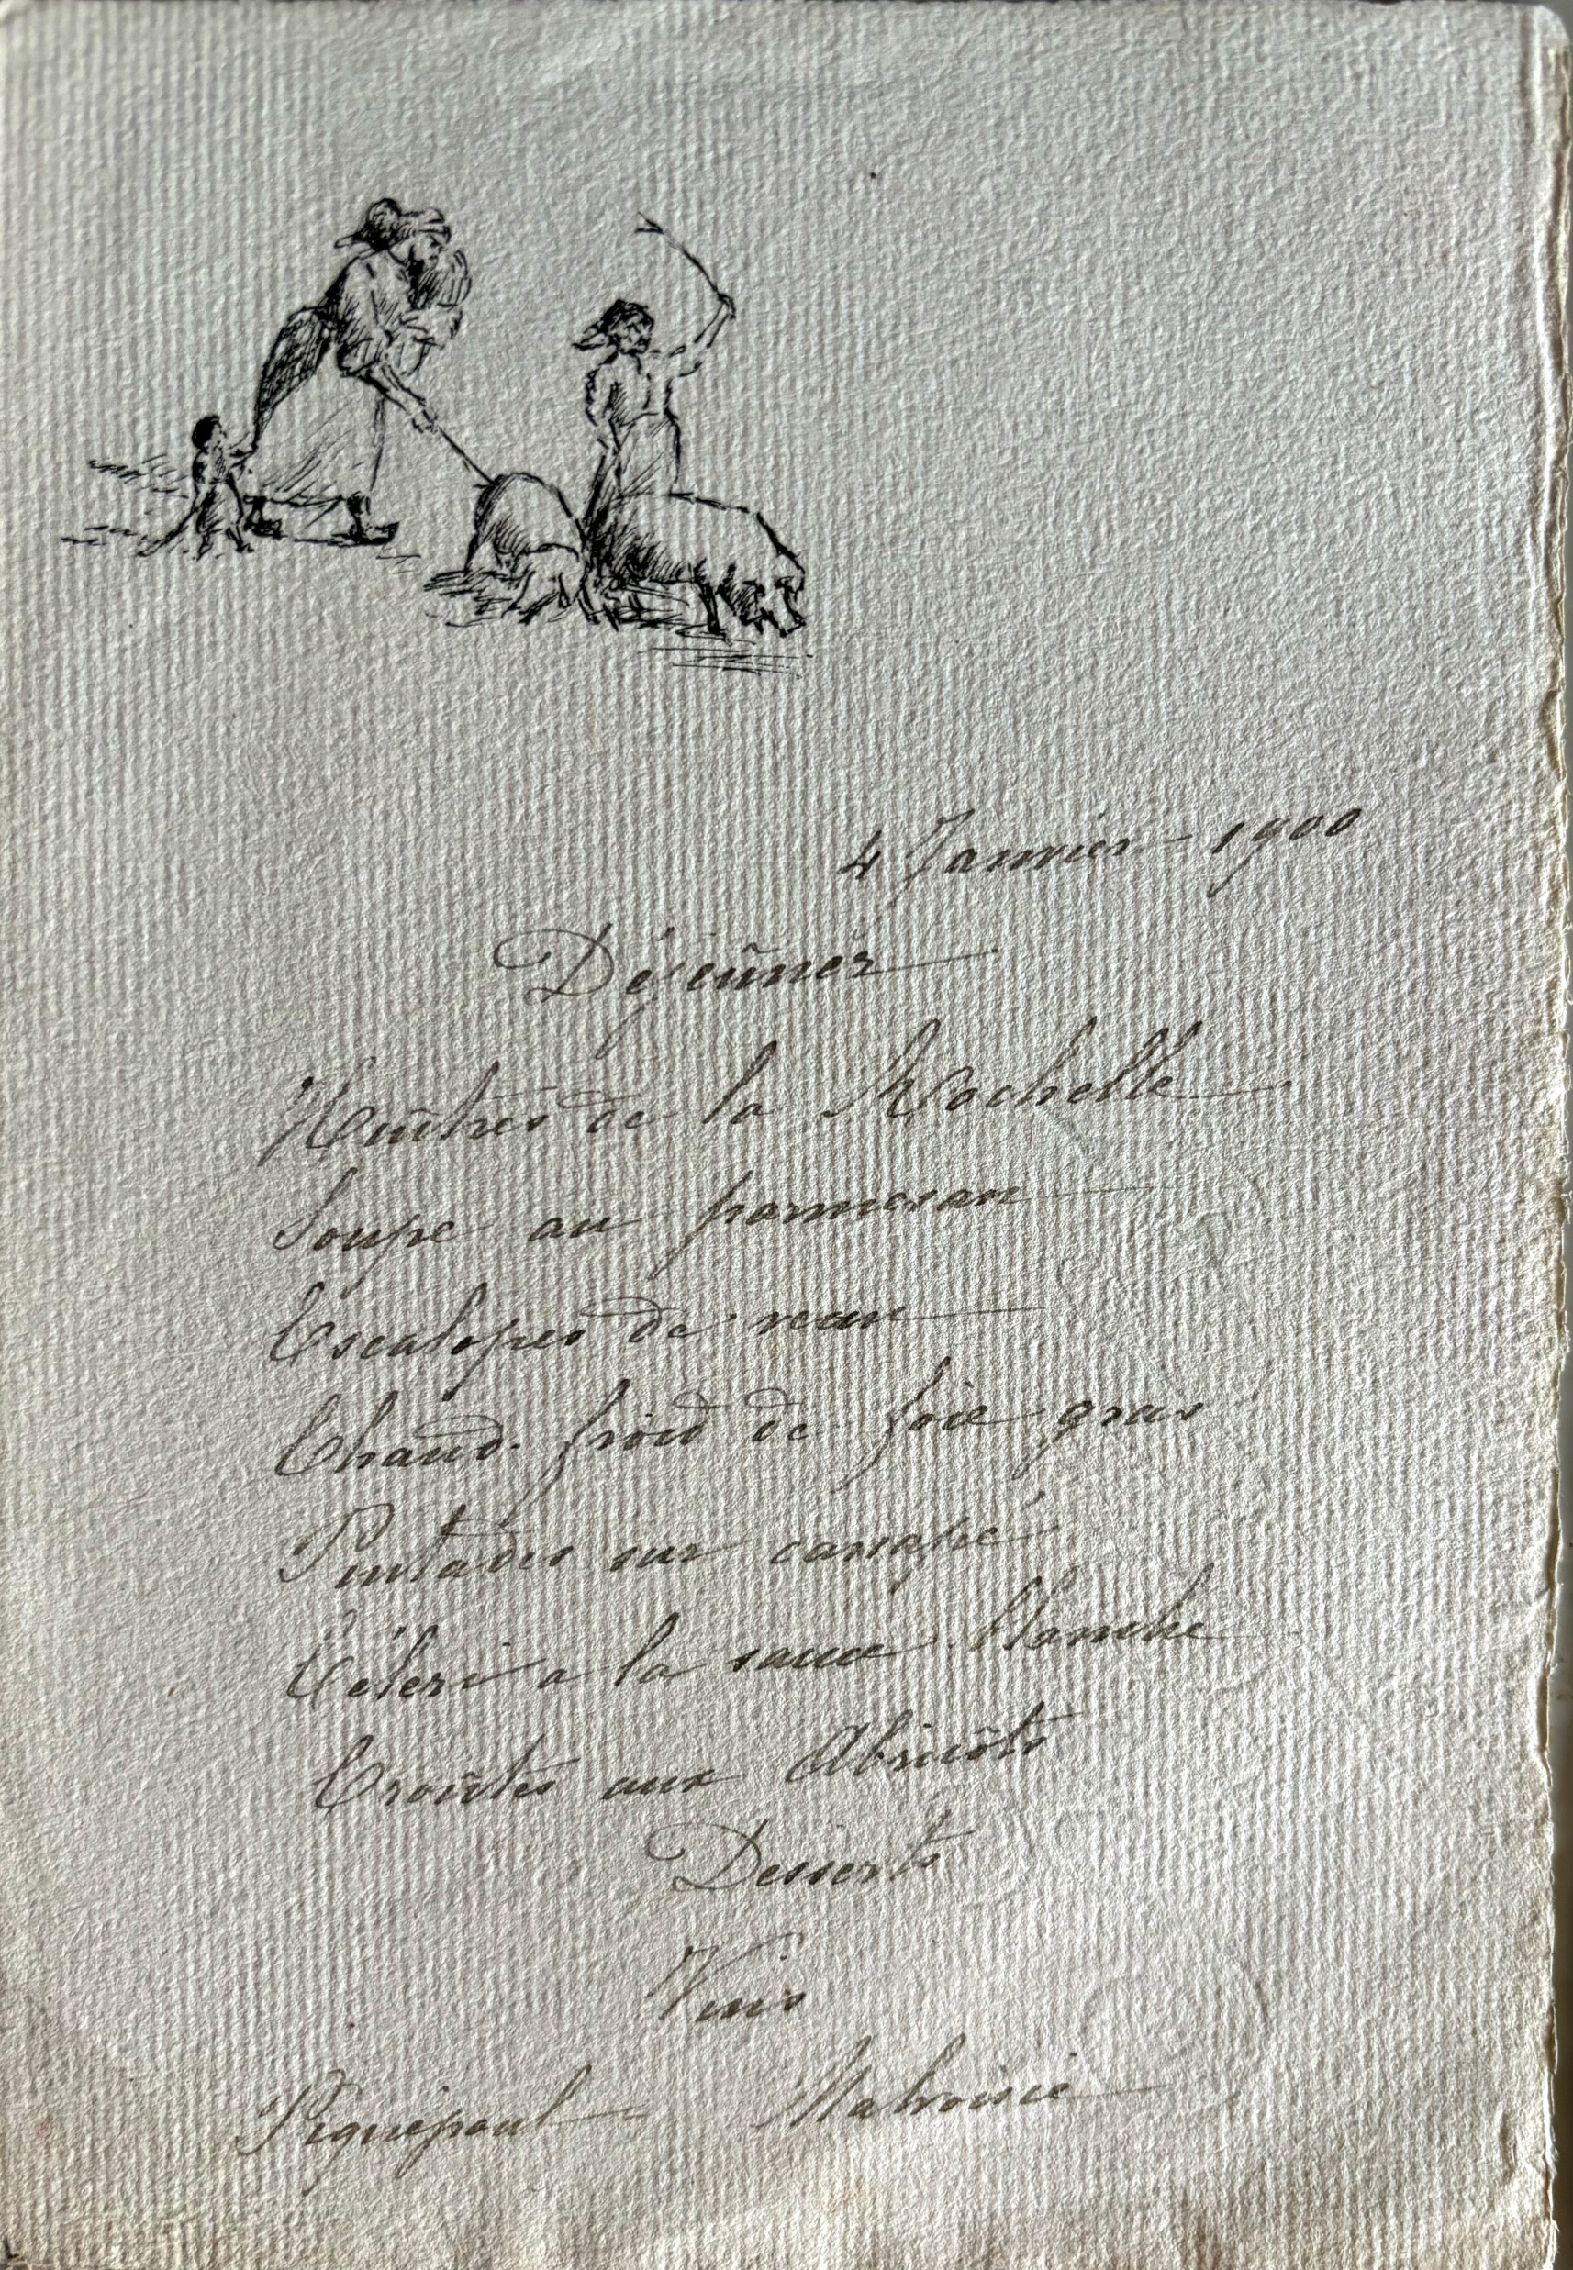 4 Janvier - 1900
Déjeûner
Huîtres de la Rochelle
Soupe au parmesan
Escalopes de veau
Chaud-froid de foie gras
Pintades sur canapé
Céleri a la sauce blanche
Croûtes aux Abricôts
Desserts
Vins
Piquepoul Malvoisie